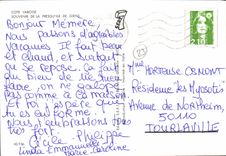 CÔTE VAROISE
SOUVENIR DE LA PRESQU'ILE DE GIENS
Bonjour Mémère.
Nous passons d'agréables
vacances Il fait beau
et chaud, et surtout
on se repose. Ça fait
du bien de ne rien
faire, on ne galope
pas comme à la maison
et toi j'espère que
tu es en forme
Nous t'embrassons tous
très fort.
Cécile Philippe
Linda Emmanuelle
Marie Caroline
2,10
23
Mme HORTENSE OSMONT
Résidence les Myosotis
Avenue de Northeim
50110
TOURLAVILLE